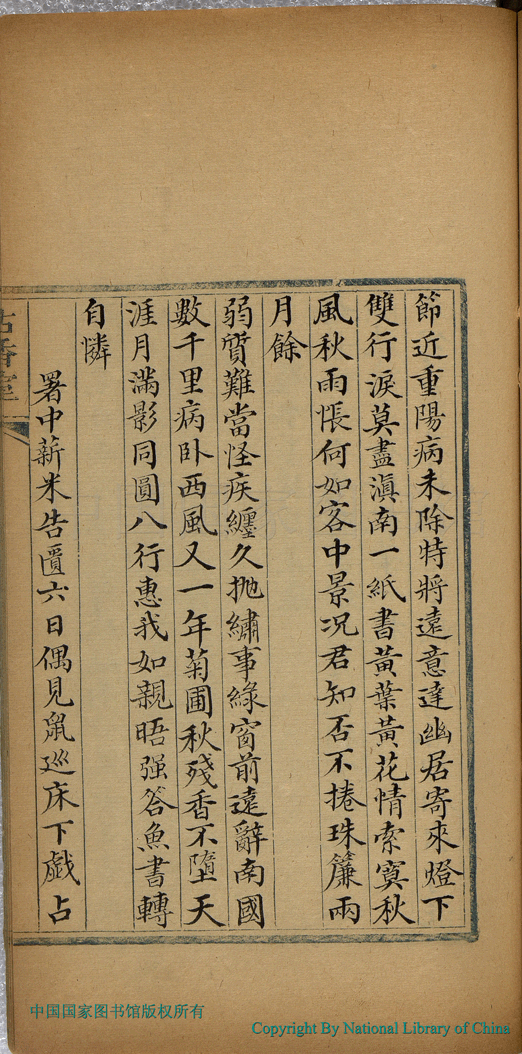 節近重陽病未除特將遠意達幽居寄來燈下
雙行淚莫盡滇南一紙書黃葉黃花情索寞秋
風秋雨悵何如客中景况君知否不捲珠簾兩
月餘
弱質難當怪疾纏久抛繡事緑窗前遠辭南國
數千里病卧西風又一年菊圃秋殘香不墮天
涯月滿影同圓八行惠我如親晤强答魚書轉
自憐
署中薪米告匱六日偶見鼠巡床下戯占
古香室
中国国家图书馆版权所有
Copyright By National Library of China